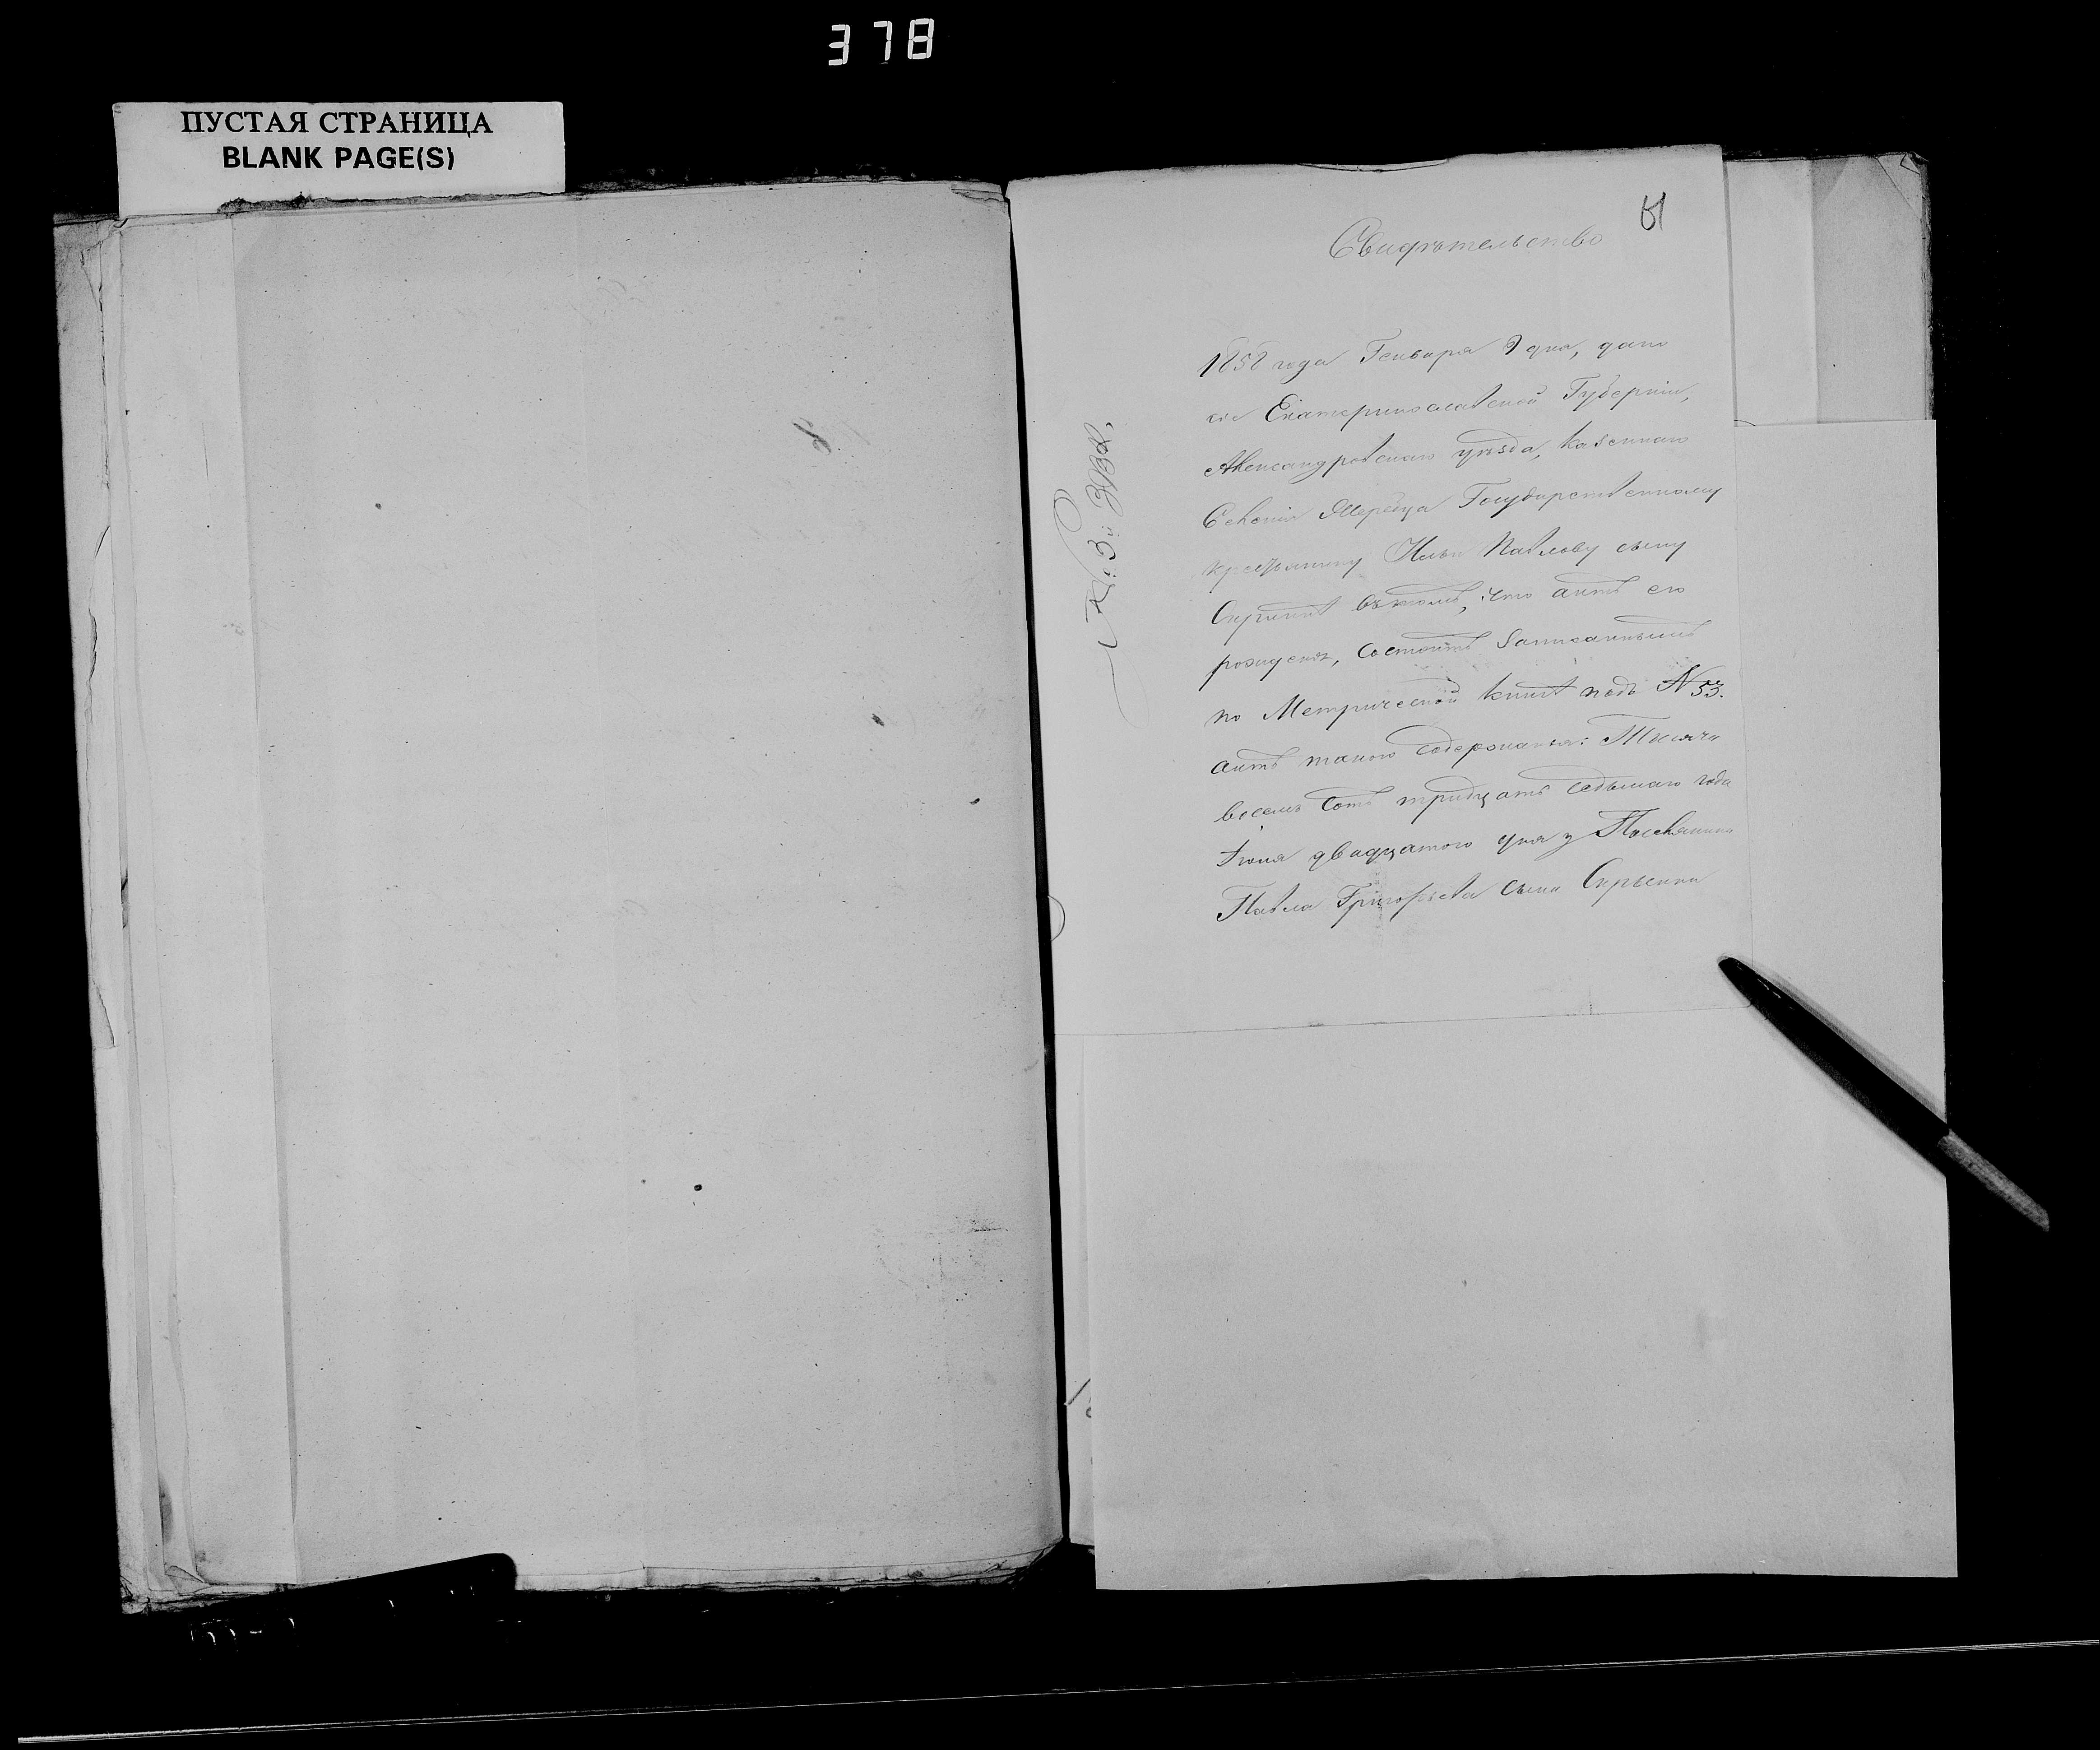 378
ПУСТАЯ СТРАНИЦА
BLANK PAGE(S)
51
Свидѣтельство
1858 года Генваря 9 дня, дано
сіе Екатеринославской Губерніи,
Александровскаго уѣзда, казеннаго
Селенія Жеребца Государственному
крестьянину Ильи Павлову сыну
въ томъ, что актъ его
рожденія, состоитъ записаннымъ
по Метрической книгѣ подъ N 53.
актъ такого содержанія: Тысяча
восемь сотъ тридцать седьмаго года
Іюня двадцатого дня у Поселянина
Павла Григорьева сына